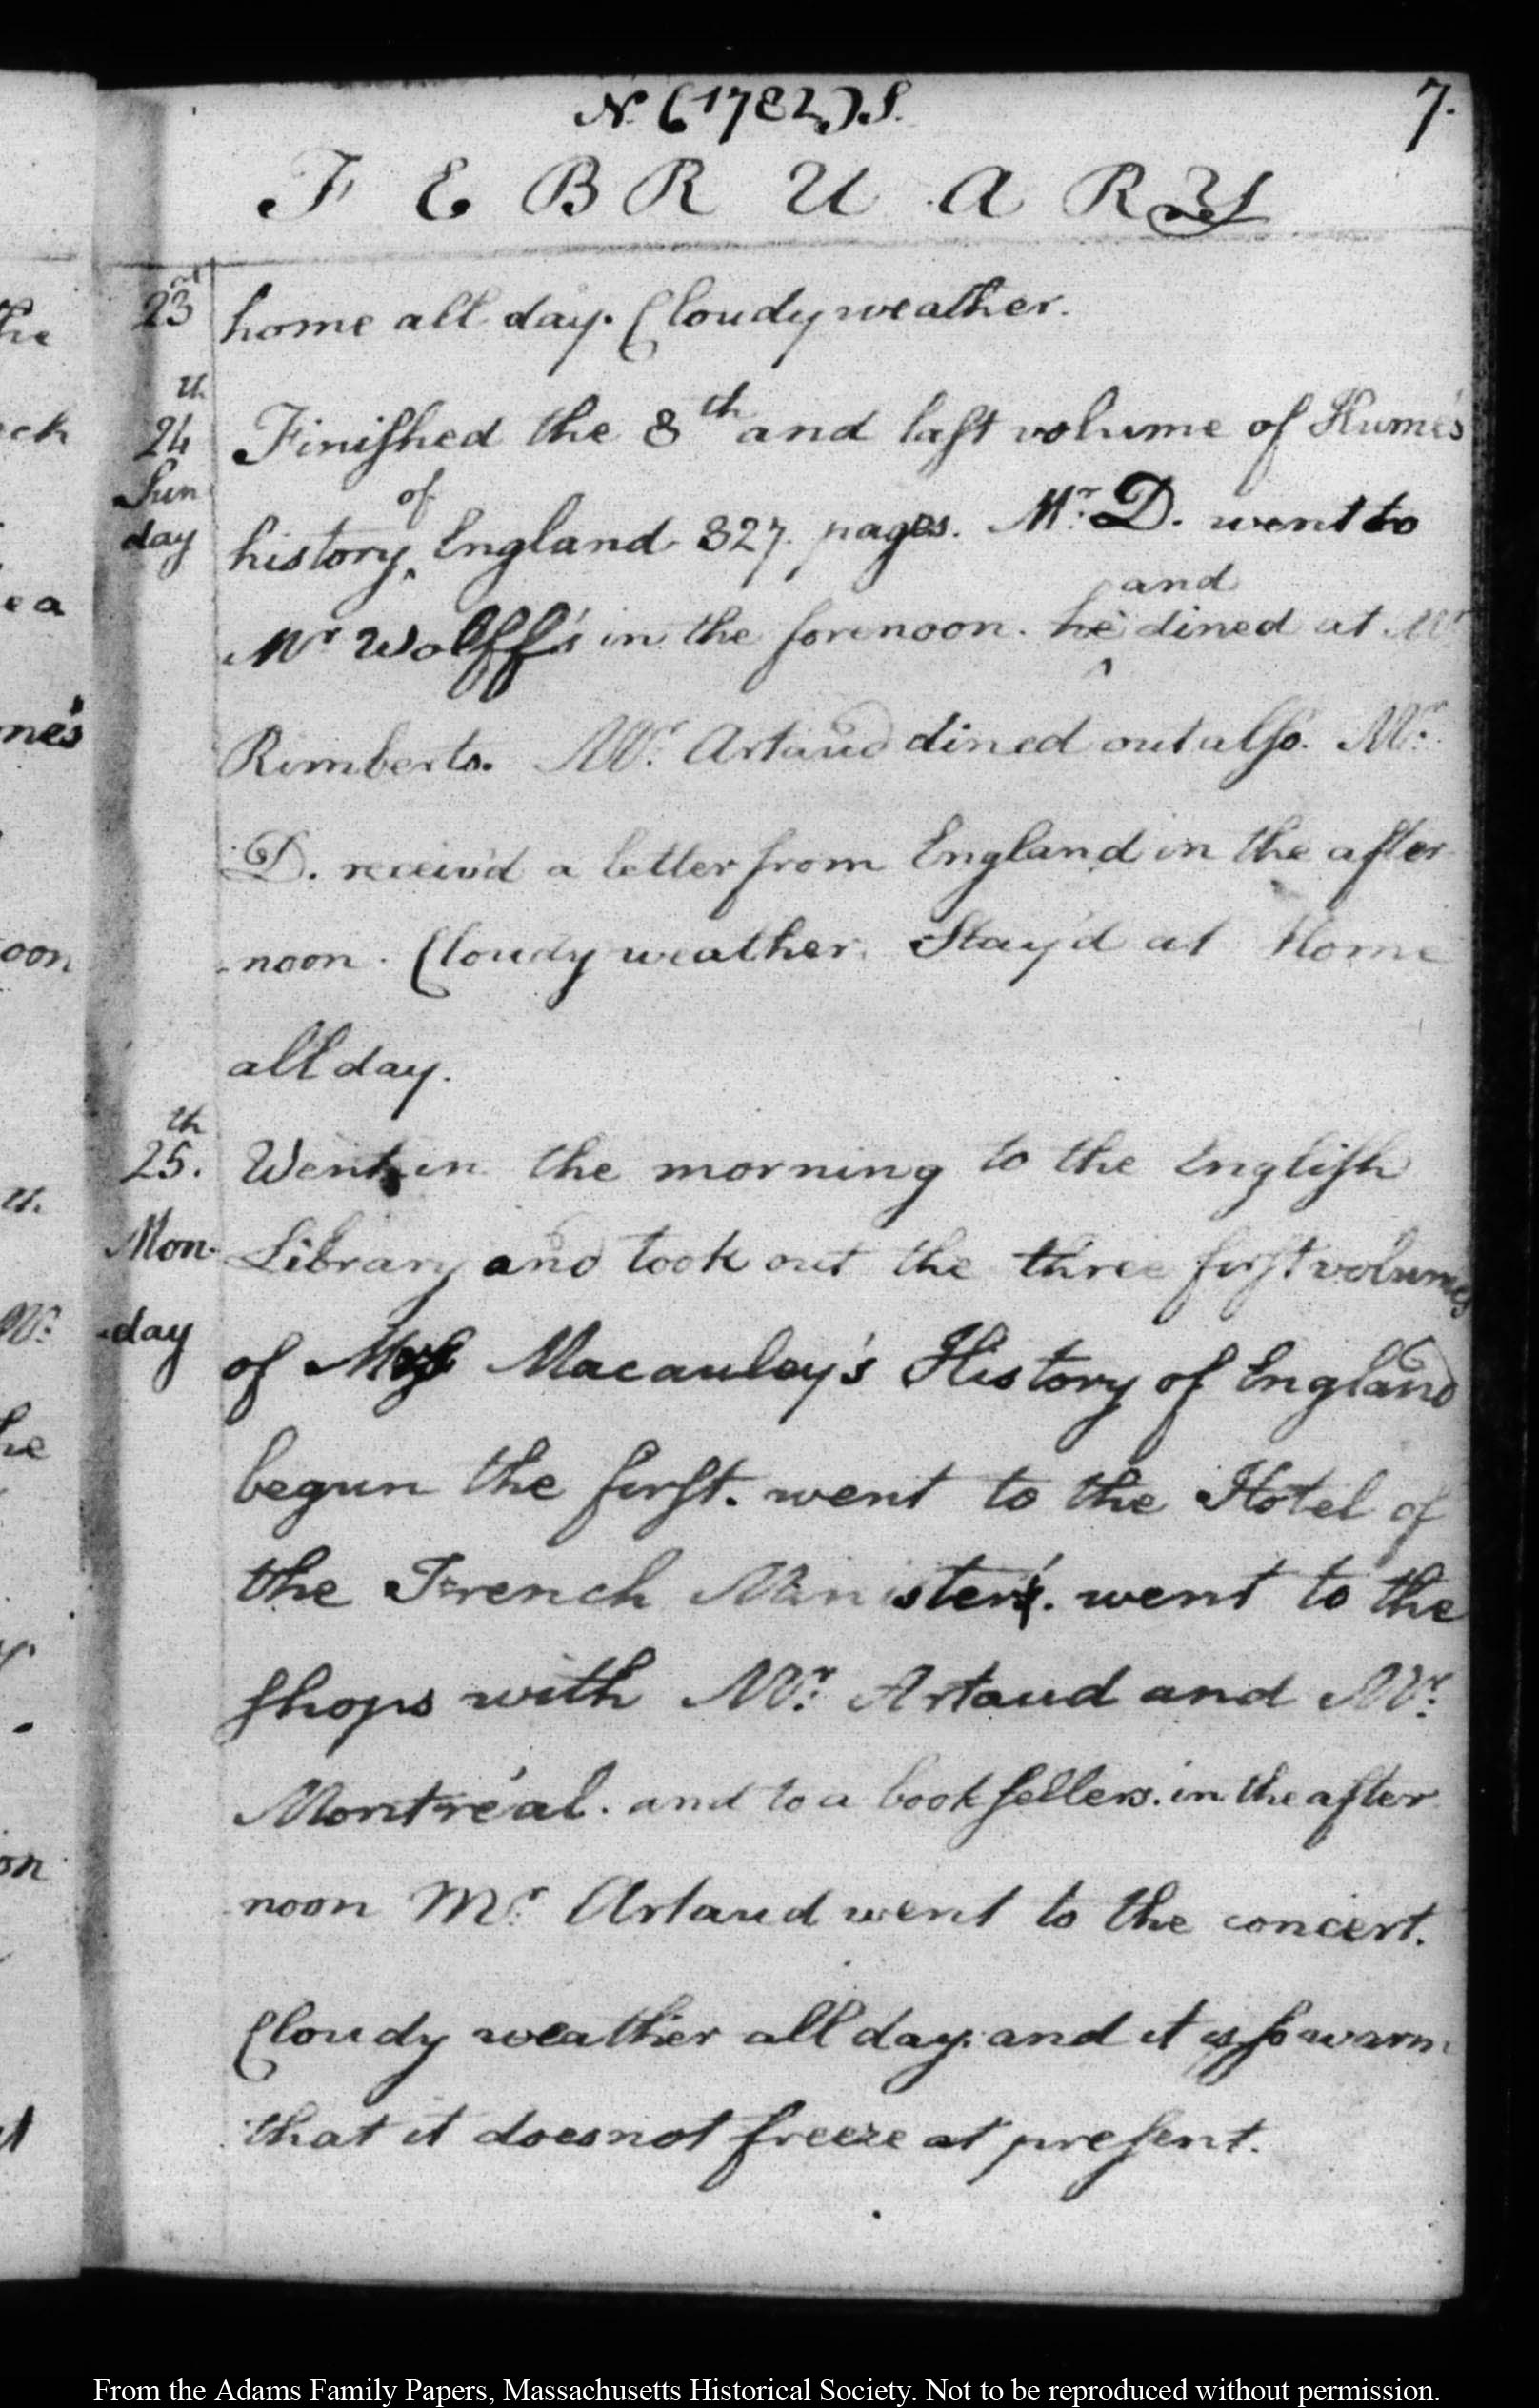 N. (1782.) S. 7.
F E B R U A R Y
23d home all day. Cloudy weather.
24th Finiſhed the 8th and laſt volume of Hume's
Sun history of England 327. pages. Mr. D. went to
day Mr Wolff's in the forenoon. he and dined at Mr
Rimberts. Mr. Artaud dined out alſo. Mr.
D. receiv'd a letter from England in the after
-noon. Cloudy weather. Stay'd at Home
all day.
25th. Went in the morning to the Engliſh
Mon- Library and took out the three firſt volumes
-day of Mrs Macauley's History of England
begun the firſt. went to the Hotel of
the French Minister's. went to the
ſhops with Mr. Artaud and Mr.
Montréal. and to a bookſellers. in the after
noon Mr. Artaud went to the concert.
Cloudy weather all day. and it is ſo warm
that it does not freeze at preſent.
he
ck
ea
me's
oon
th
Mr.
he
on
From the Adams Family Papers, Massachusetts Historical Society. Not to be reproduced without permission.